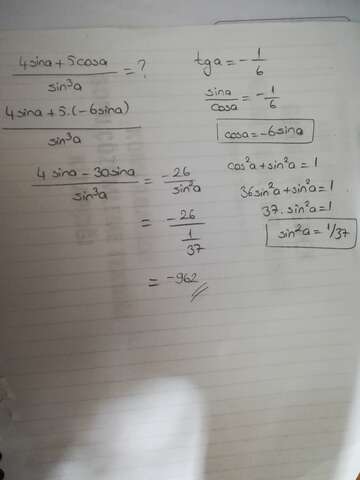 4sina + 5cosa / sin³a = ?
4sina + 5.(-6sina) / sin³a
4 sina - 30sina / sin³a = -26 / sin²a
= -26 / 1/37
= -962
tga = - 1/6
sina / cosa = - 1/6
cosa = -6sina
cos²a + sin²a = 1
36sin²a + sin²a = 1
37. sin²a = 1
sin²a = 1/37